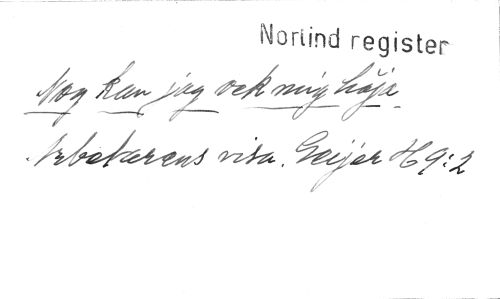 Norlind register
Nog kan jag ock mig höja
Arbetarens visa. Geijer H 9:2